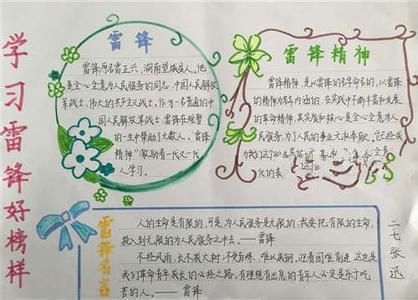 学习雷锋好榜样
雷锋
雷锋原名雷正兴,湖南望城人,他
是全心全意为人民服务的同志,中国人民解放
军战士,伟大的共产主义战士,作为一名普通的中
国人民解放军战士,雷锋在短暂
的一生中帮助了无数人。雷锋
精神"激励着一代又一代
人学习。
雷锋精神
雷锋精神,是以雷锋的名字命名的,以雷锋
的精神为基本内涵的,在实践中不断丰富和发展
的革命精神,其实质和核心是全心全意为人民
服务,为了人民的事业无私奉献。
二七张迅
雷锋名言
人的生命是有限的,可是,为人民服务是无限的,我要把有限的生命,
投入到无限的为人民服务之中去。——雷锋
不经风雨,长不成大树,不受百炼,难以成钢,迎着困难前进,这也是
我们革命青年成长的必经之路,有理想有出息的青年人必定是乐于吃
苦的人。——雷锋